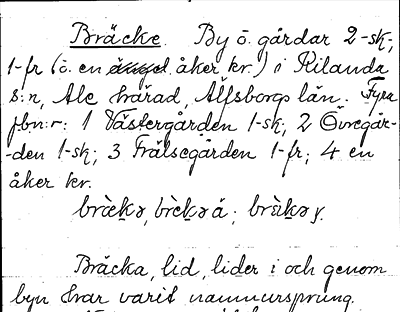 Bräcke. By ö. gårdar 2-sk;
1-fr (ö. en åker kr.) i Kilanda
s:n, Ale härad, Älfsborgs län. Fyra
fbn:r: 1 Västergården 1-sk; 2 Övregår-
-den 1-sk; 3 Frälsegården 1-fr; 4 en
åker kr.
Bräcka, lid, lider i och genom
byn har varit namnursprung.